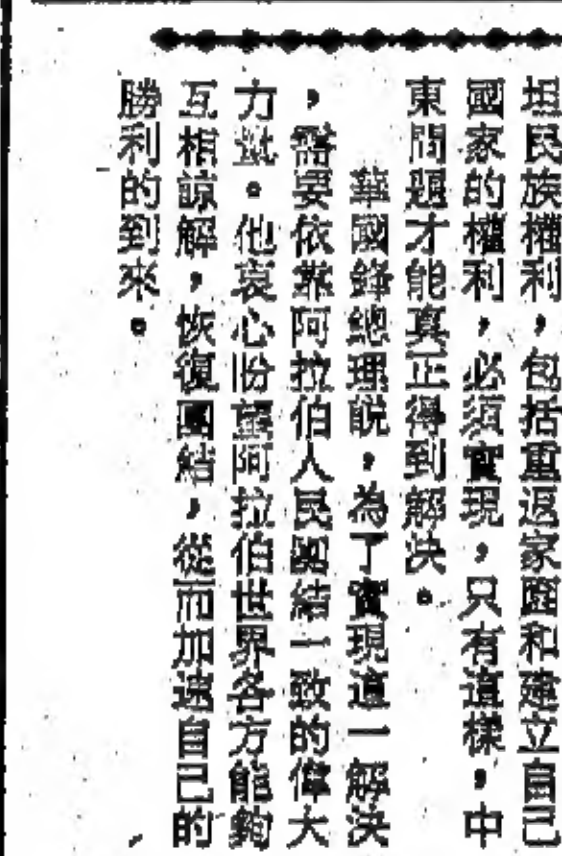 坦民族權利，包括重返家園和建立自己
國家的權利，必須實現，只有這樣，中
東問題才能真正得到解決。
華國鋒總理說，為了實現這一解決
，需要依靠阿拉伯人民團結一致的偉大
力量。他衷心盼望阿拉伯世界各方能夠
互相諒解，恢復團結，從而加速自己的
勝利的到來。